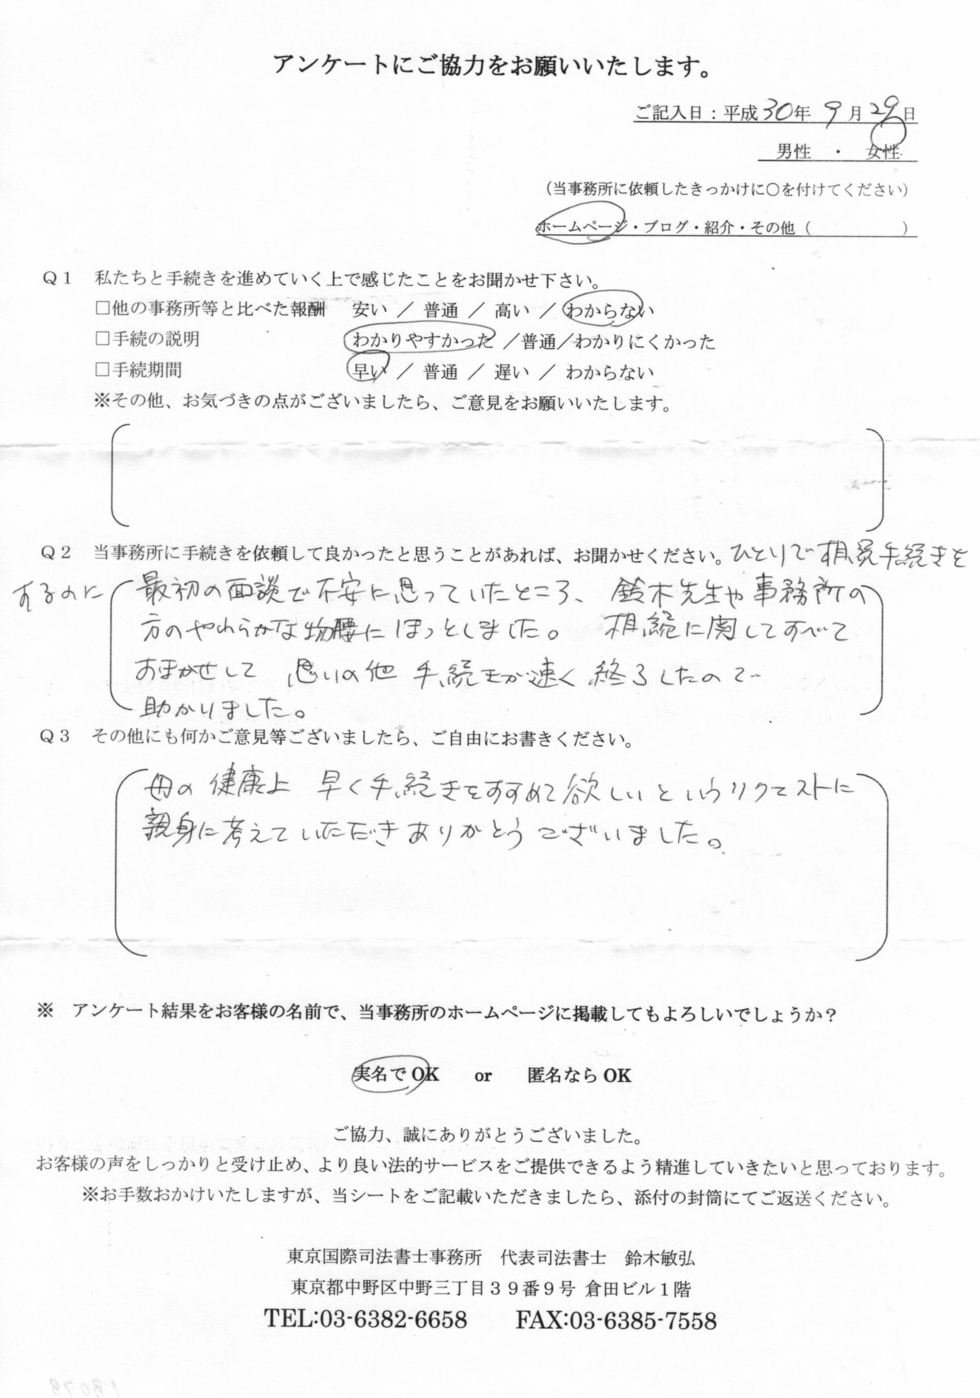 アンケートにご協力をお願いいたします。
ご記入日：平成30年 9月29日
男性 ・ 女性
（当事務所に依頼したきっかけに○を付けてください）
ホームページ・ブログ・紹介・その他（　　　　　）
Q1 私たちと手続きを進めていく上で感じたことをお聞かせ下さい。
□他の事務所等と比べた報酬 安い ／ 普通 ／ 高い ／ わからない
□手続の説明 わかりやすかった ／普通／わかりにくかった
□手続期間 早い ／ 普通 ／ 遅い ／ わからない
※その他、お気づきの点がございましたら、ご意見をお願いいたします。
Q2 当事務所に手続きを依頼して良かったと思うことがあれば、お聞かせください。ひとりで相続手続きを
するのに 最初の面談で不安に思っていたところ、鈴木先生や事務所の
方のやわらかな物腰にほっとしました。 相続に関してすべて
おまかせして 思いの他 手続きが速く終了したので
助かりました。
Q3 その他にも何かご意見等ございましたら、ご自由にお書きください。
母の健康上 早く手続きをすすめて欲しいというリクエストに
親身に考えていただきありがとうございました。
※ アンケート結果をお客様の名前で、当事務所のホームページに掲載してもよろしいでしょうか？
実名でOK or 匿名ならOK
ご協力、誠にありがとうございました。
お客様の声をしっかりと受け止め、より良い法的サービスをご提供できるよう精進していきたいと思っております。
※お手数おかけいたしますが、当シートをご記載いただきましたら、添付の封筒にてご返送ください。
東京国際司法書士事務所 代表司法書士 鈴木敏弘
東京都中野区中野三丁目３９番９号 倉田ビル１階
TEL:03-6382-6658 FAX:03-6385-7558